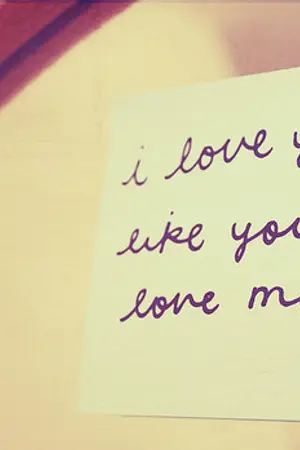 i love y
like you
love m